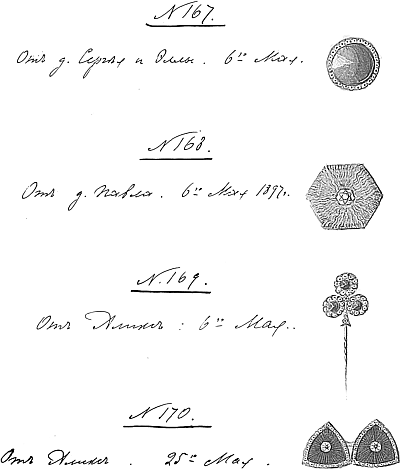 N 167.
Отъ д. Сергѣя и Эллы. 6го Мая.
N 168.
Отъ д. Павла. 6го Мая 1897г.
N. 169.
Отъ Аликсъ: 6го Мая..
N 170.
Отъ Аликсъ. 25го Мая.